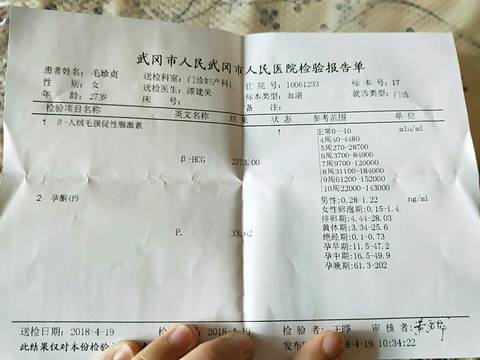 武冈市人民武冈市人民医院检验报告单
患者姓名: 毛珍贞 送检科室: 门诊妇产科1 住院号: 10061233 标本号: 17
性 别: 女 送检医生: 漆建关 标本类型: 血清 就诊类型: 门诊
年 龄: 27岁 床 号: 备 注:
检验项目名称 英文名称 结果 状态 参考范围 单位
1 β-人绒毛膜促性腺激素 β-HCG 2373.00 ↑ 正常0--10 mlu/ml
4周40-4480
5周270-28700
6周3700-84900
7周9700-120000
8周31100-184000
9周61200-152000
10周22000-143000
2 孕酮(P) P. 33.62 男性:0.28-1.22 ng/ml
女性卵泡期:0.15-1.4
排卵期:4.44-28.03
黄体期:3.34-25.6
绝经期:0.1-0.73
孕早期:11.5-47.2
孕中期:16.5-49.9
孕晚期:61.3-202
送检日期: 2018-4-19 检 2018-4-19 检验者: 王晔 审核者:
此结果仅对本份检验 发布时 -19 10:34:22